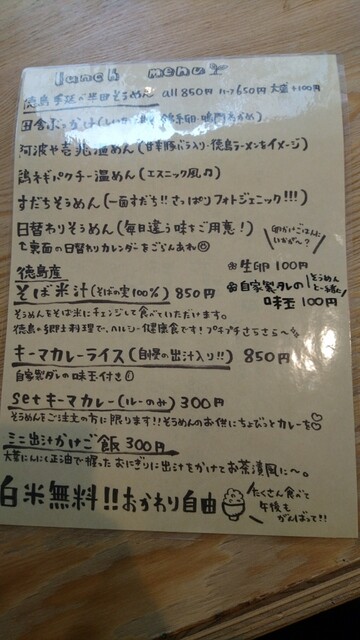 lunch menu
徳島 手延べ半田そうめん all 850円 ハーフ650円 大盛+100円
田舎ぶっかけ(しいたけ 錦糸卵・鳴門わかめ)
阿波や壱兆温めん(甘辛豚バラ入り・徳島ラーメンをイメージ)
鶏ネギパクチー温めん(エスニック風)
すだちそうめん(一面すだち!!さっぱりフォトジェニック!!!)
日替わりそうめん(毎日違う味をご用意!)
裏面の日替わりカレンダーをごらんあれ
卵かけごはんにいかが〜?
生卵 100円
自家製タレの味玉 100円
そうめんと一緒に
徳島産
そば米汁(そばの実100%) 850円
そうめんをそば米汁にチェンジして食べていただけます。
徳島の郷土料理で、ヘルシー健康食です!プチプチさらさら〜
キーマカレーライス(自慢の出汁入り!!) 850円
自家製ダレの味玉付き!
setキーマカレー(ルーのみ) 300円
そうめんをご注文の方に限ります!!そうめんのお供にちょびっとカレーを♡
ミニ出汁かけご飯 300円
大葉にんにく正油で握ったおにぎりに出汁をかけてお茶漬風に〜。
白米無料!!おかわり自由
たくさん食べて
午後も
がんばって!!